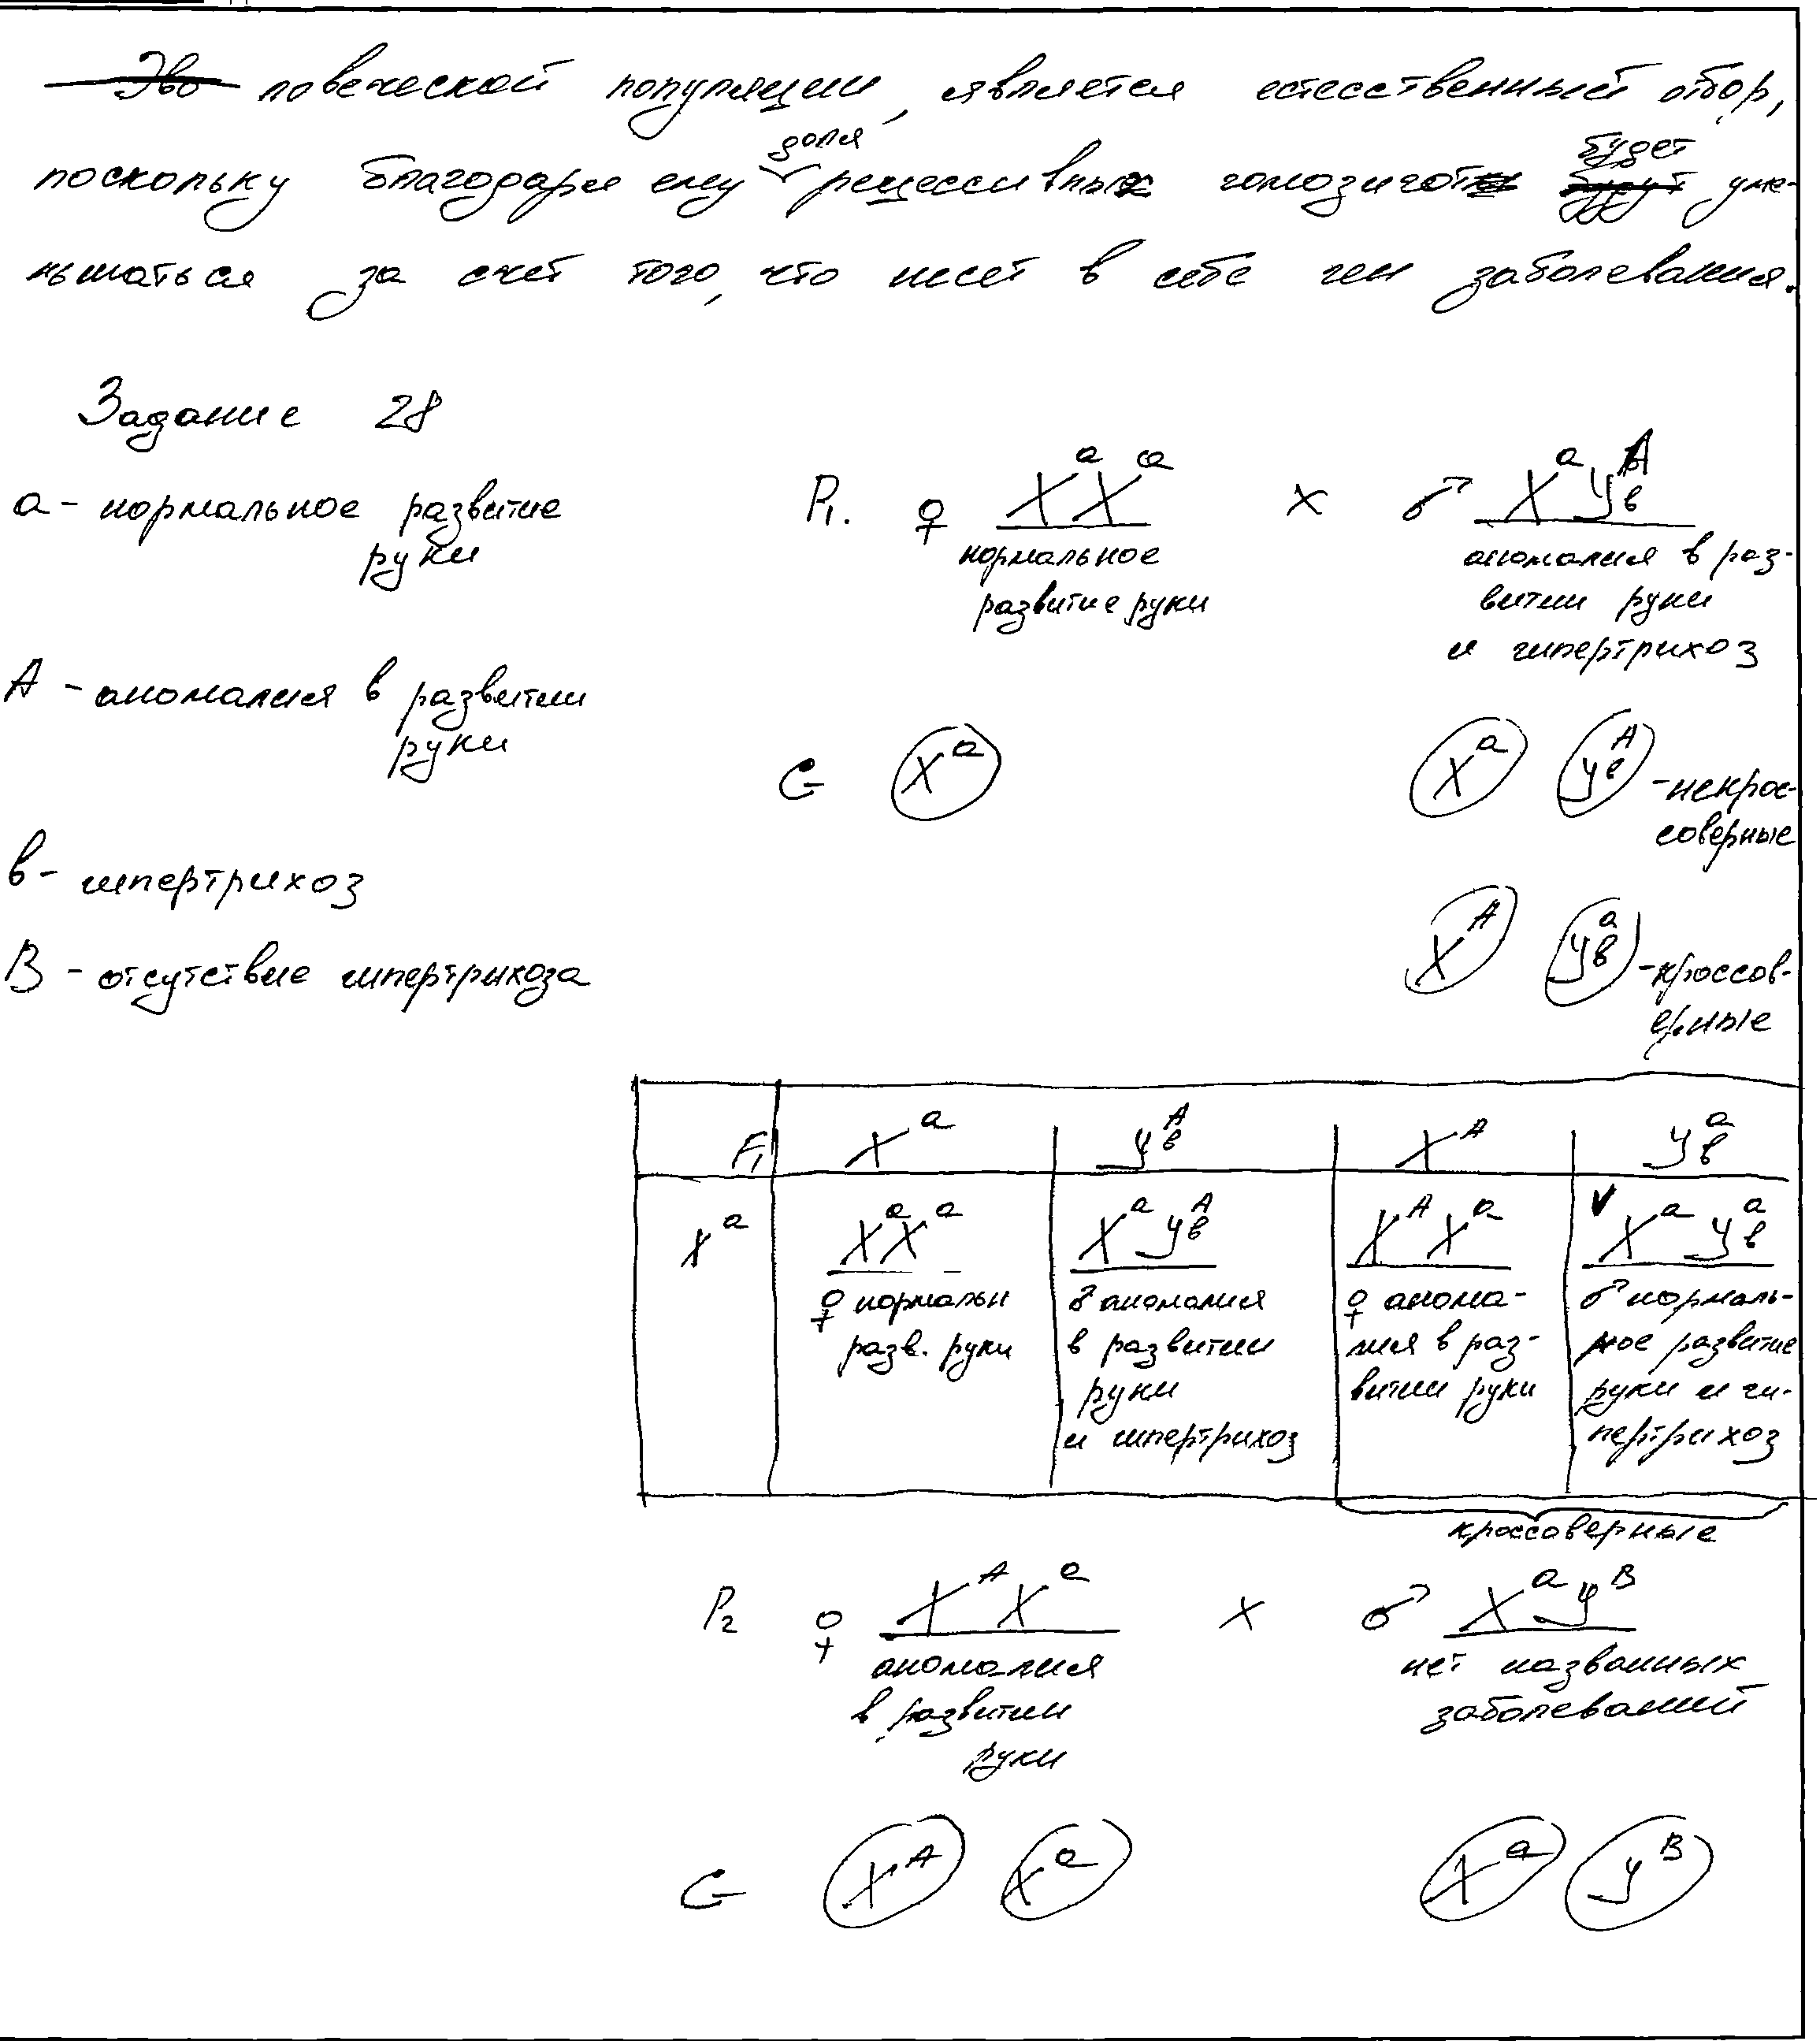 ловеческой популяции, является естесственный отбор,
поскольку благодаря ему доля рецессивных гомозигот будет уме-
ньшаться за счет того, что несет в себе ген заболевания.
Задание 28
а - нормальное развитие
руки
А - аномалия в развитии
руки
в - гипертрихоз
В - отсутствие гипертрихоза
P₁. ♀ XᵃXᵃ x ♂ XᵃYᴬв
нормальное
развитие руки
аномалия в раз-
витии руки
и гипертрихоз
G Xᵃ Xᵃ Yᴬв - некрос-
соверные
Xᴬ Yᵃв - кроссов-
ерные
F₁ Xᵃ Yᴬв Xᴬ Yᵃв
Xᵃ XᵃXᵃ XᵃYᴬв XᴬXᵃ XᵃYᵃв
♀ нормальн
разв. руки
♂ аномалия
в развитии
руки
и гипертрихоз
♀ анома-
лия в раз-
витии руки
♂ нормаль-
ное развитие
руки и ги-
пертрихоз
кроссоверные
P₂ ♀ XᴬXᵃ x ♂ XᵃYᴮ
аномалия
в развитии
руки
нет названных
заболеваний
G Xᴬ Xᵃ Xᵃ Yᴮ